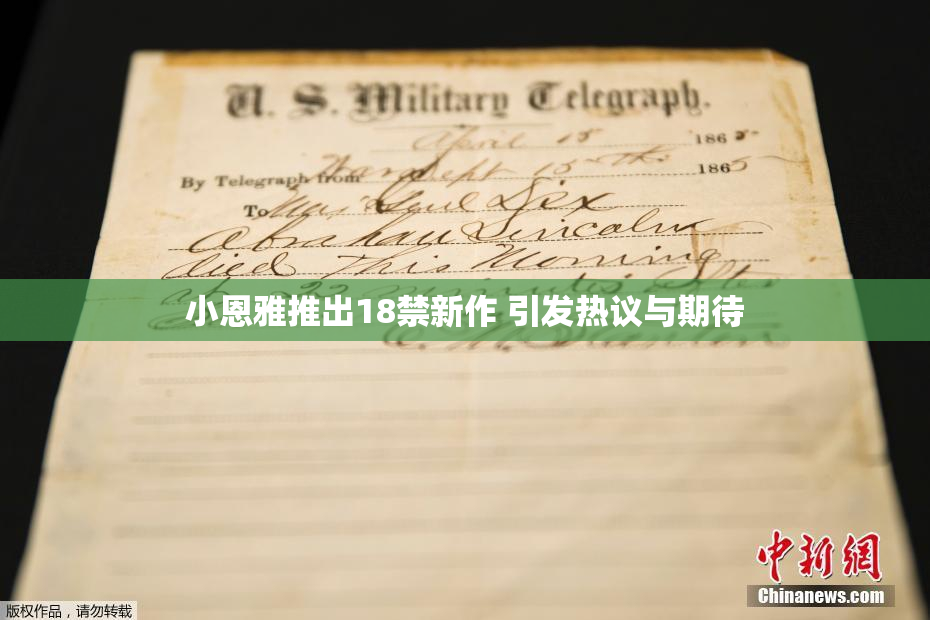 U. S. Military Telegraph.
April 15 1865
By Telegraph from War Dept 15th 1865
To Maj Genl Dix
Abraham Lincoln
died This Morning
at 22 minutes after
小恩雅推出18禁新作 引发热议与期待
E. M. Stanton
中新网
Chinanews.com
版权作品，请勿转载